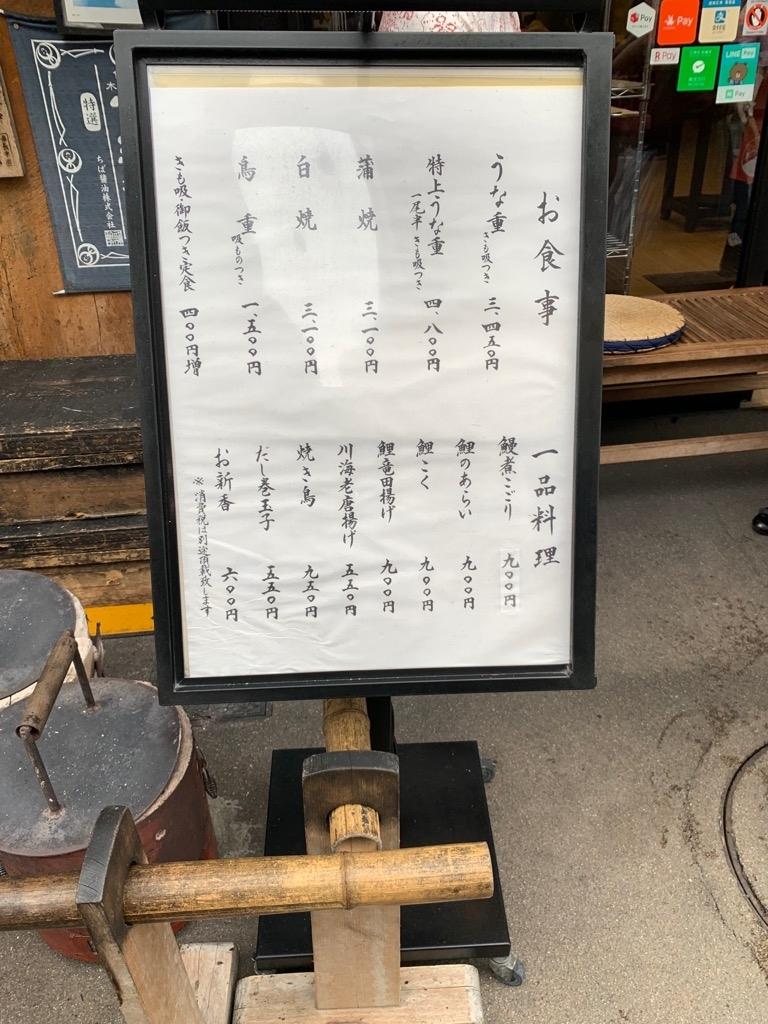 お食事
うな重 きも吸つき 三、四五〇円
特上うな重 一尾半 きも吸つき 四、八〇〇円
蒲焼 三、一〇〇円
白焼 三、一〇〇円
鳥重 吸ものつき 一、五〇〇円
きも吸・御飯つき定食 四〇〇円増
一品料理
鰻煮こごり 九〇〇円
鯉のあらい 九〇〇円
鯉こく 九〇〇円
鯉竜田揚げ 九〇〇円
川海老唐揚げ 五五〇円
焼き鳥 九五〇円
だし巻玉子 五五〇円
お新香 六〇〇円
※消費税は別途頂戴致します
木
特選
ちば醤油株式会社
Pay
Pay
R Pay
LINE Pay
Pay